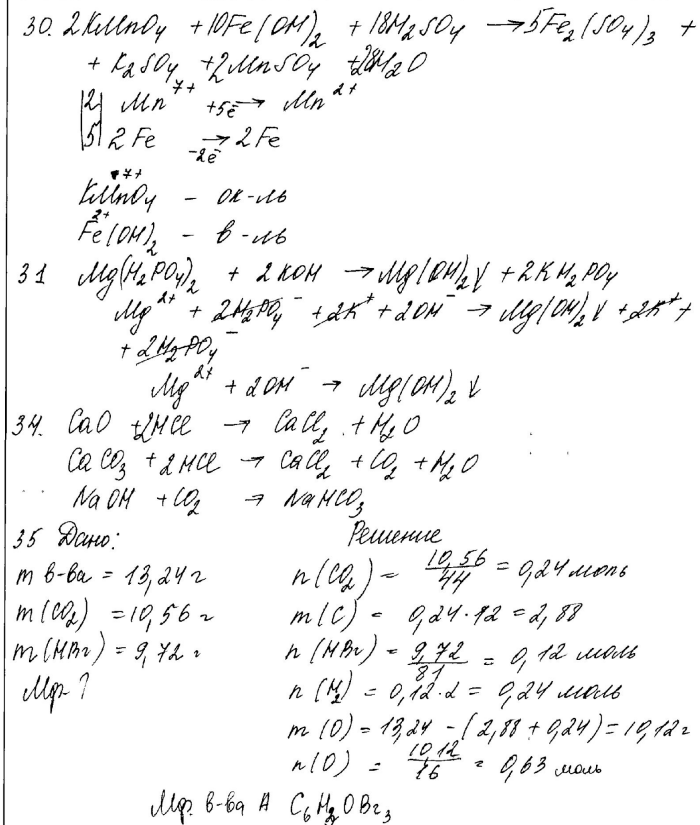 30. 2KMnO₄ + 10Fe(OH)₂ + 18H₂SO₄ → 5Fe₂(SO₄)₃ +
+ K₂SO₄ + 2MnSO₄ + 28H₂O
|2| Mn⁷⁺ +5ē→ Mn²⁺
|5| 2Fe →-2ē 2Fe
KMn⁺⁷O₄ - ок-ль
Fe²⁺(OH)₂ - в-ль
31 Mg(H₂PO₄)₂ + 2KOH → Mg(OH)₂↓ + 2KH₂PO₄
Mg²⁺ + 2H₂PO₄⁻ + 2K⁺ + 2OH⁻ → Mg(OH)₂↓ + 2K⁺ +
+ 2H₂PO₄⁻
Mg²⁺ + 2OH⁻ → Mg(OH)₂↓
34. CaO + 2HCl → CaCl₂ + H₂O
CaCO₃ + 2HCl → CaCl₂ + CO₂ + H₂O
NaOH + CO₂ → NaHCO₃
35 Дано: Решение
m в-ва = 13,24 г n(CO₂) = 10,56/44 = 0,24 моль
m(CO₂) = 10,56 г m(C) = 0,24·12 = 2,88
m(HBr) = 9,72 г n(HBr) = 9,72/81 = 0,12 моль
Мф. ? n(H₂) = 0,12·2 = 0,24 моль
m(O) = 13,24 - (2,88 + 0,24) = 10,12 г
n(O) = 10,12/16 = 0,63 моль
Мф. в-ва A C₆H₂OBr₃